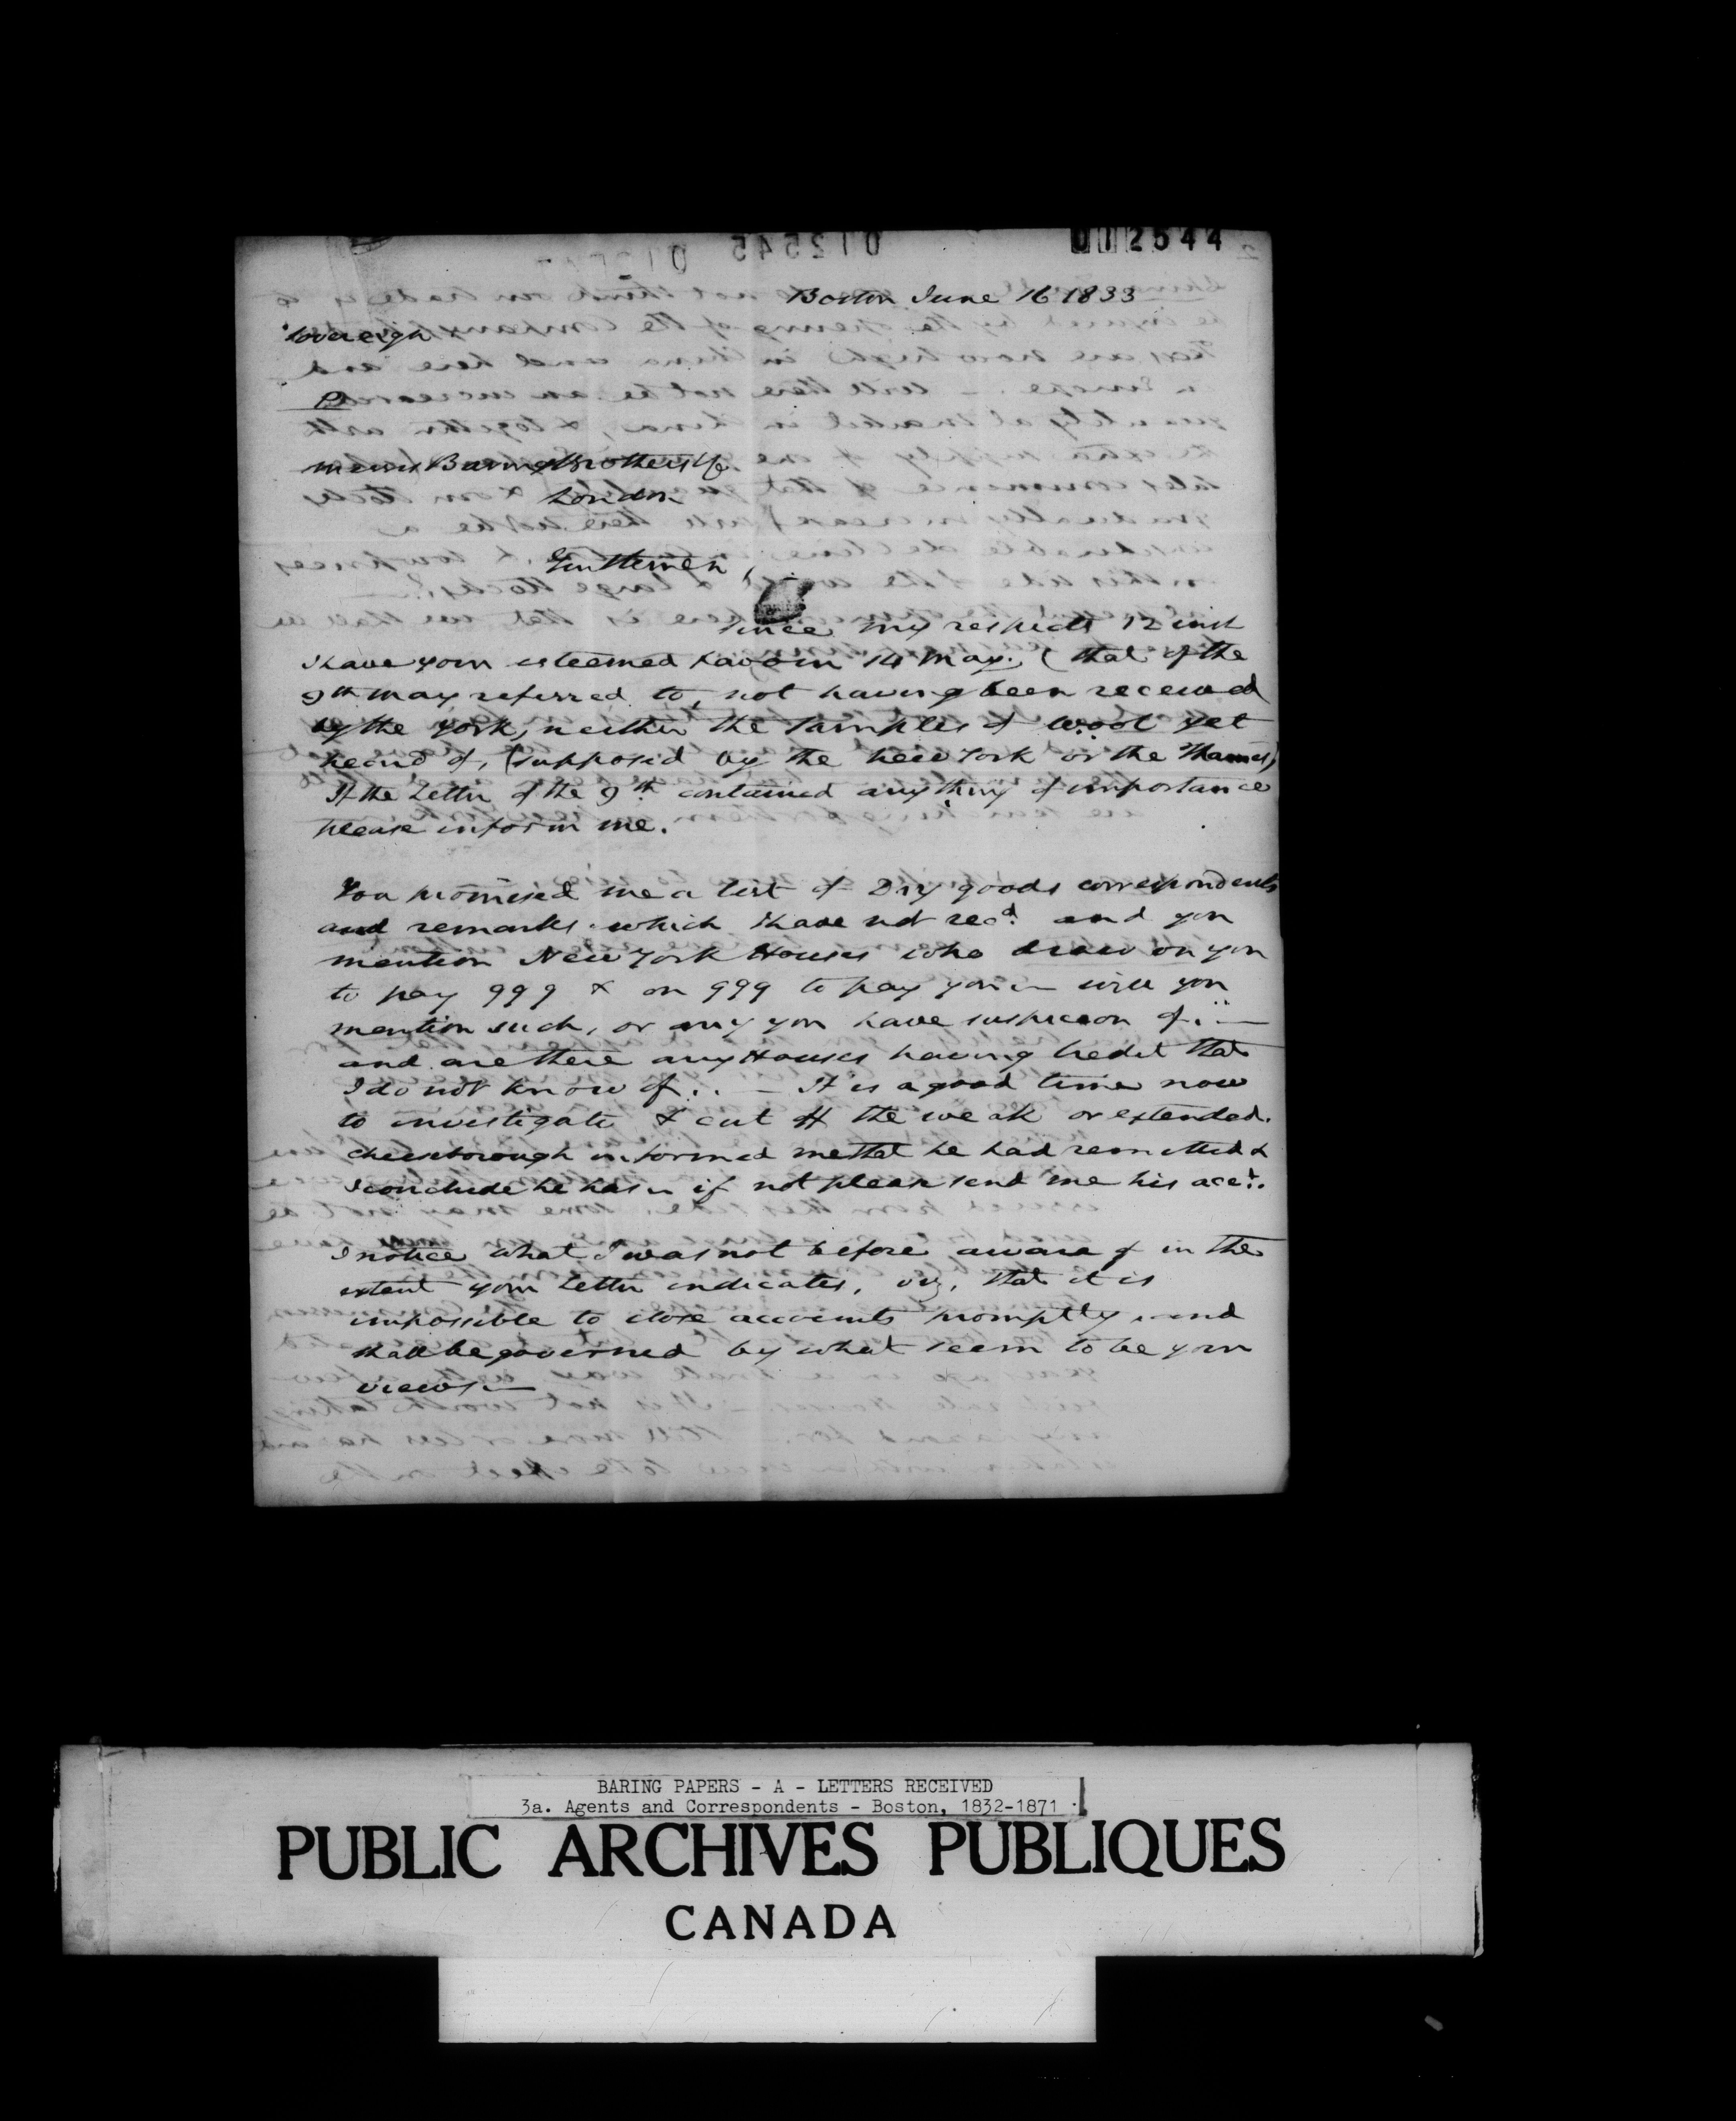 012544
Boston June 16 1833
Sovereign
P
Messrs Baring Brothers & Co
London
Gentlemen,
Since my respects 12 inst
I have your esteemed favour 14 May. (that of the
9th May referred to, not having been received
by the York, neither the samples of wool yet
heard of, (supposed by the New York or the Thames)
If the Letter of the 9th contained any thing of importance
please inform me.
You promised me a list of Dry goods correspondents
and remarks which I have not recd. and you
mention New York Houses who draw on you
to pay 999 & on 999 to pay you — will you
mention such, or any you have suspicion of. —
and are there any Houses having Credit that
I do not know of.. — It is a good time now
to investigate & cut off the weak or extended.
Cheesborough informed me that he had remitted &
I conclude he has — if not please send me his acct.
I notice what I was not before aware of in the
extent your Letter indicates, viz, that it is
impossible to close accounts promptly and
shall be governed by what seem to be your
views. —
BARING PAPERS - A - LETTERS RECEIVED
3a. Agents and Correspondents - Boston, 1832-1871
PUBLIC ARCHIVES PUBLIQUES
CANADA